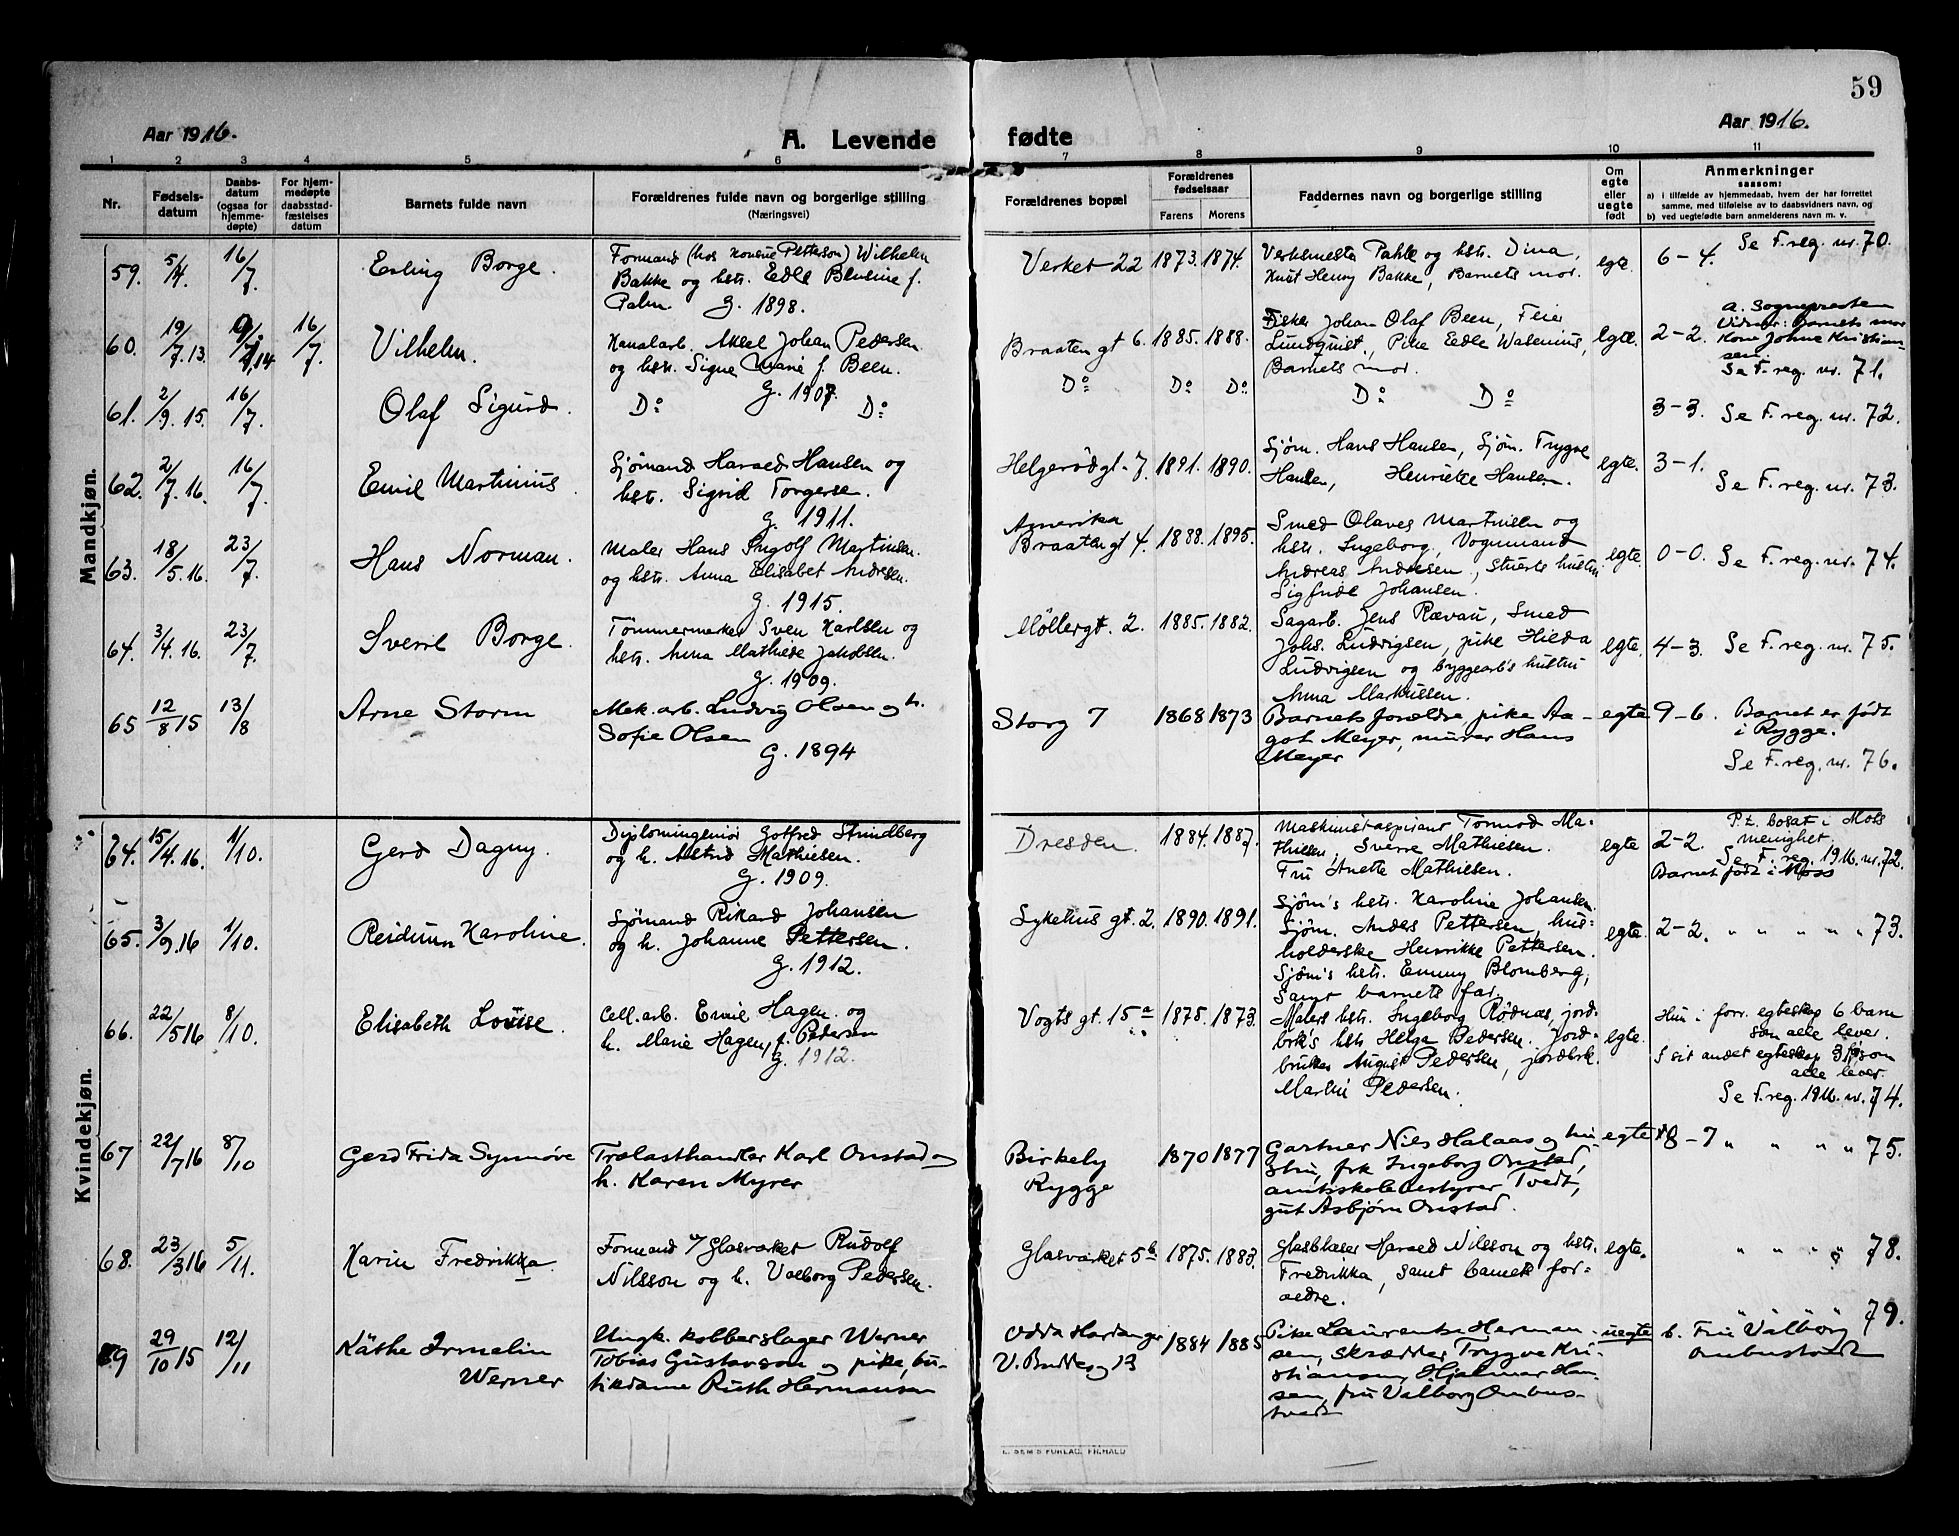 59
Aar 1916.
A. Levende fødte
Aar 1916.
1 2 3 4 5 6 7 8 9 10 11
Nr.
Fødsels-
datum
Daabs-
datum
(ogsaa for
hjemme-
døpte)
For hjem-
medøpte
daabsstad-
fæstelses
datum
Barnets fulde navn
Forældrenes fulde navn og borgerlige stilling
(Næringsvei)
Forældrenes bopæl
Forældrenes
fødselsaar
Farens Morens
Faddernes navn og borgerlige stilling
Om
egte
eller
uegte
født
Anmerkninger
saasom:
a) i tilfælde av hjemmedaab, hvem der har forrettet
samme, med tilføielse av to daabsvidners navn, og
b) ved uegtefødte barn anmelderens navn m. v.
Mandkjøn.
59. 5/4. 16/7. Erling Borge.
Formand (hos Petterson) Wilhelm
Bakke og hstr. Edle f.
Palm G. 1898.
Verket 22 1873. 1874.
Verksmester Pahle og hstr. Dina,
Knut Henry Bakke, Barnets mor.
egte. 6-4. Se F. reg. nr. 70.
60. 19/7. 13. 16/7. Vilhelm.
Kanalarb. Aksel Johan Pedersen
og hstr. Signe Marie f. Been.
G. 1907.
Braaten gt 6. 1885. 1888.
Fisker Johan Olaf Been, Feier
Lundquist, Pike Edle Wasenius,
Barnets mor.
egte. 2-2.
a. Sognepresten
Vidner: Barnets mor
Kone Johne Kristian-
sen
Se F. reg. nr. 71.
61. 2/9. 15. 16/7. Olaf Sigurd.
Do Do
Do Do Do Do Do
3-3. Se F. reg. nr. 72.
62. 2/7. 16. 16/7. Emil Martinius.
Sjømand Harald Hansen og
hstr. Sigrid Torgersen.
G. 1911.
Helgerødgt. 7. 1891. 1890.
Sjøm. Hans Hansen, Sjøm. Trygve
Hansen, Henriette Hansen.
egte. 3-1.
Se F. reg. nr. 73.
63. 18/5. 16. 23/7. Hans Norman.
Maler Hans Ingolf Martinsen.
og hstr. Anna Elisabet Andresen.
G. 1915.
Amerika
Braatengt 4. 1888. 1895.
Smed Olaves Martinsen og
hstr. Ingeborg, Vognmand
Andreas Andresen, Stuerts hustru
Sigfride Johansen.
egte. 0-0. Se F. reg. nr. 74.
64. 3/4. 16. 23/7. Sverre Borge.
Tømmermerker Sven Karlsen og
hstr. Anna Mathilde Jakobsen.
G. 1909.
Møllergt. 2. 1885. 1882.
Sagarb. Jens Rævau, Smed
Johs. Ludvigsen, pike Hilda
Ludvigsen og byggearb's hustru
Anna Markussen.
egte. 4-3. Se F. reg. nr. 75.
65 12/8 15 13/8 Arne Storm
Mek. arb. Ludvig Olsen og h.
Sofie Olsen
G. 1894
Storg 7 1868 1873
Barnets forældre, pike Aa-
got Meyer, murer Hans
Meyer
egte 9-6. Barnet er født
i Rygge.
Se F. reg. nr. 76.
Kvindekjøn.
64. 15/4. 16. 1/10. Gerd Dagny.
Diplomingeniør Gotfred Strindberg
og h. Astrid Mathiesen.
G. 1909.
Dresden. 1884. 1887.
Maskinistaspirant Tormod Ma-
thiesen, Sverre Mathiesen.
Fru Anette Mathiesen.
egte 2-2.
P.t. bosat i Moss
menighet.
Se F. reg. 1916. nr. 72.
Barnet født i Moss
65. 3/9. 16 1/10. Reidun Karoline.
Sjømand Rikard Johansen
og h. Johanne Pettersen.
G. 1912.
Sykehus gt. 2. 1890. 1891.
Sjøm's hstr. Karoline Johansen.
Sjøm. Anders Pettersen, hus-
holderske Henrikke Pettersen.
Sjøm's hstr. Emmy Blomberg,
Samt barnets far.
egte. 2-2. " " " " " 73.
66. 22/5 16 8/10. Elisabeth Louise.
Cell. arb. Emil Hagen og
h. Marie Hagen, f. Pedersen
G. 1912.
Vogts gt. 15 a 1875. 1873.
Malers hstr. Ingeborg Rødnas, jord-
brk's hstr Helga Pedersen. Jord-
bruker August Pedersen, jordbrk.
Martin Pedersen.
egte.
Hun i forr. egteskap 6 barn
som alle lever.
I sit andet egteskap 3 som
alle lever.
Se F. reg. 1916. nr. 74.
67 22/7 16 8/10 Gerd Frida Synnøve
Trælasthandler Karl Onstad og
h. Karen Myrer
Birkely
Rygge
1870 1877
Gartner Nils Halaas og hu-
stru, frk Ingeborg Onstad,
amtsskolebestyrer Tvedt,
gut Asbjørn Onstad.
egte 8-7 " " " " 75.
68. 23/3 16 5/11. Karin Fredrikka.
Formand v/ Glasverket Rudolf
Nilsson og h. Valborg Pedersen.
Glasverket 5 b 1875. 1883.
Glasblaser Harald Nilsson og hstr.
Fredrikka, samt barnets for-
ældre.
egte. " " " " 78.
69 29/10 15 12/11 Käthe Irmelin
Werner
Ungk. kobberslager Werner
Tobias Gustavson og pike, bu-
tikdame Ruth Hermansen
Odda Hardanger
1884 1885
Pike Laurentze Herman-
sen, skrædder Trygve Kri-
stiansen, Hjalmar Han-
sen, fru Valborg Ombus-
tvedt
uegte b. Fru Valborg
Ombustvedt
79.
E. SEM'S FORLAG. FR.HALD